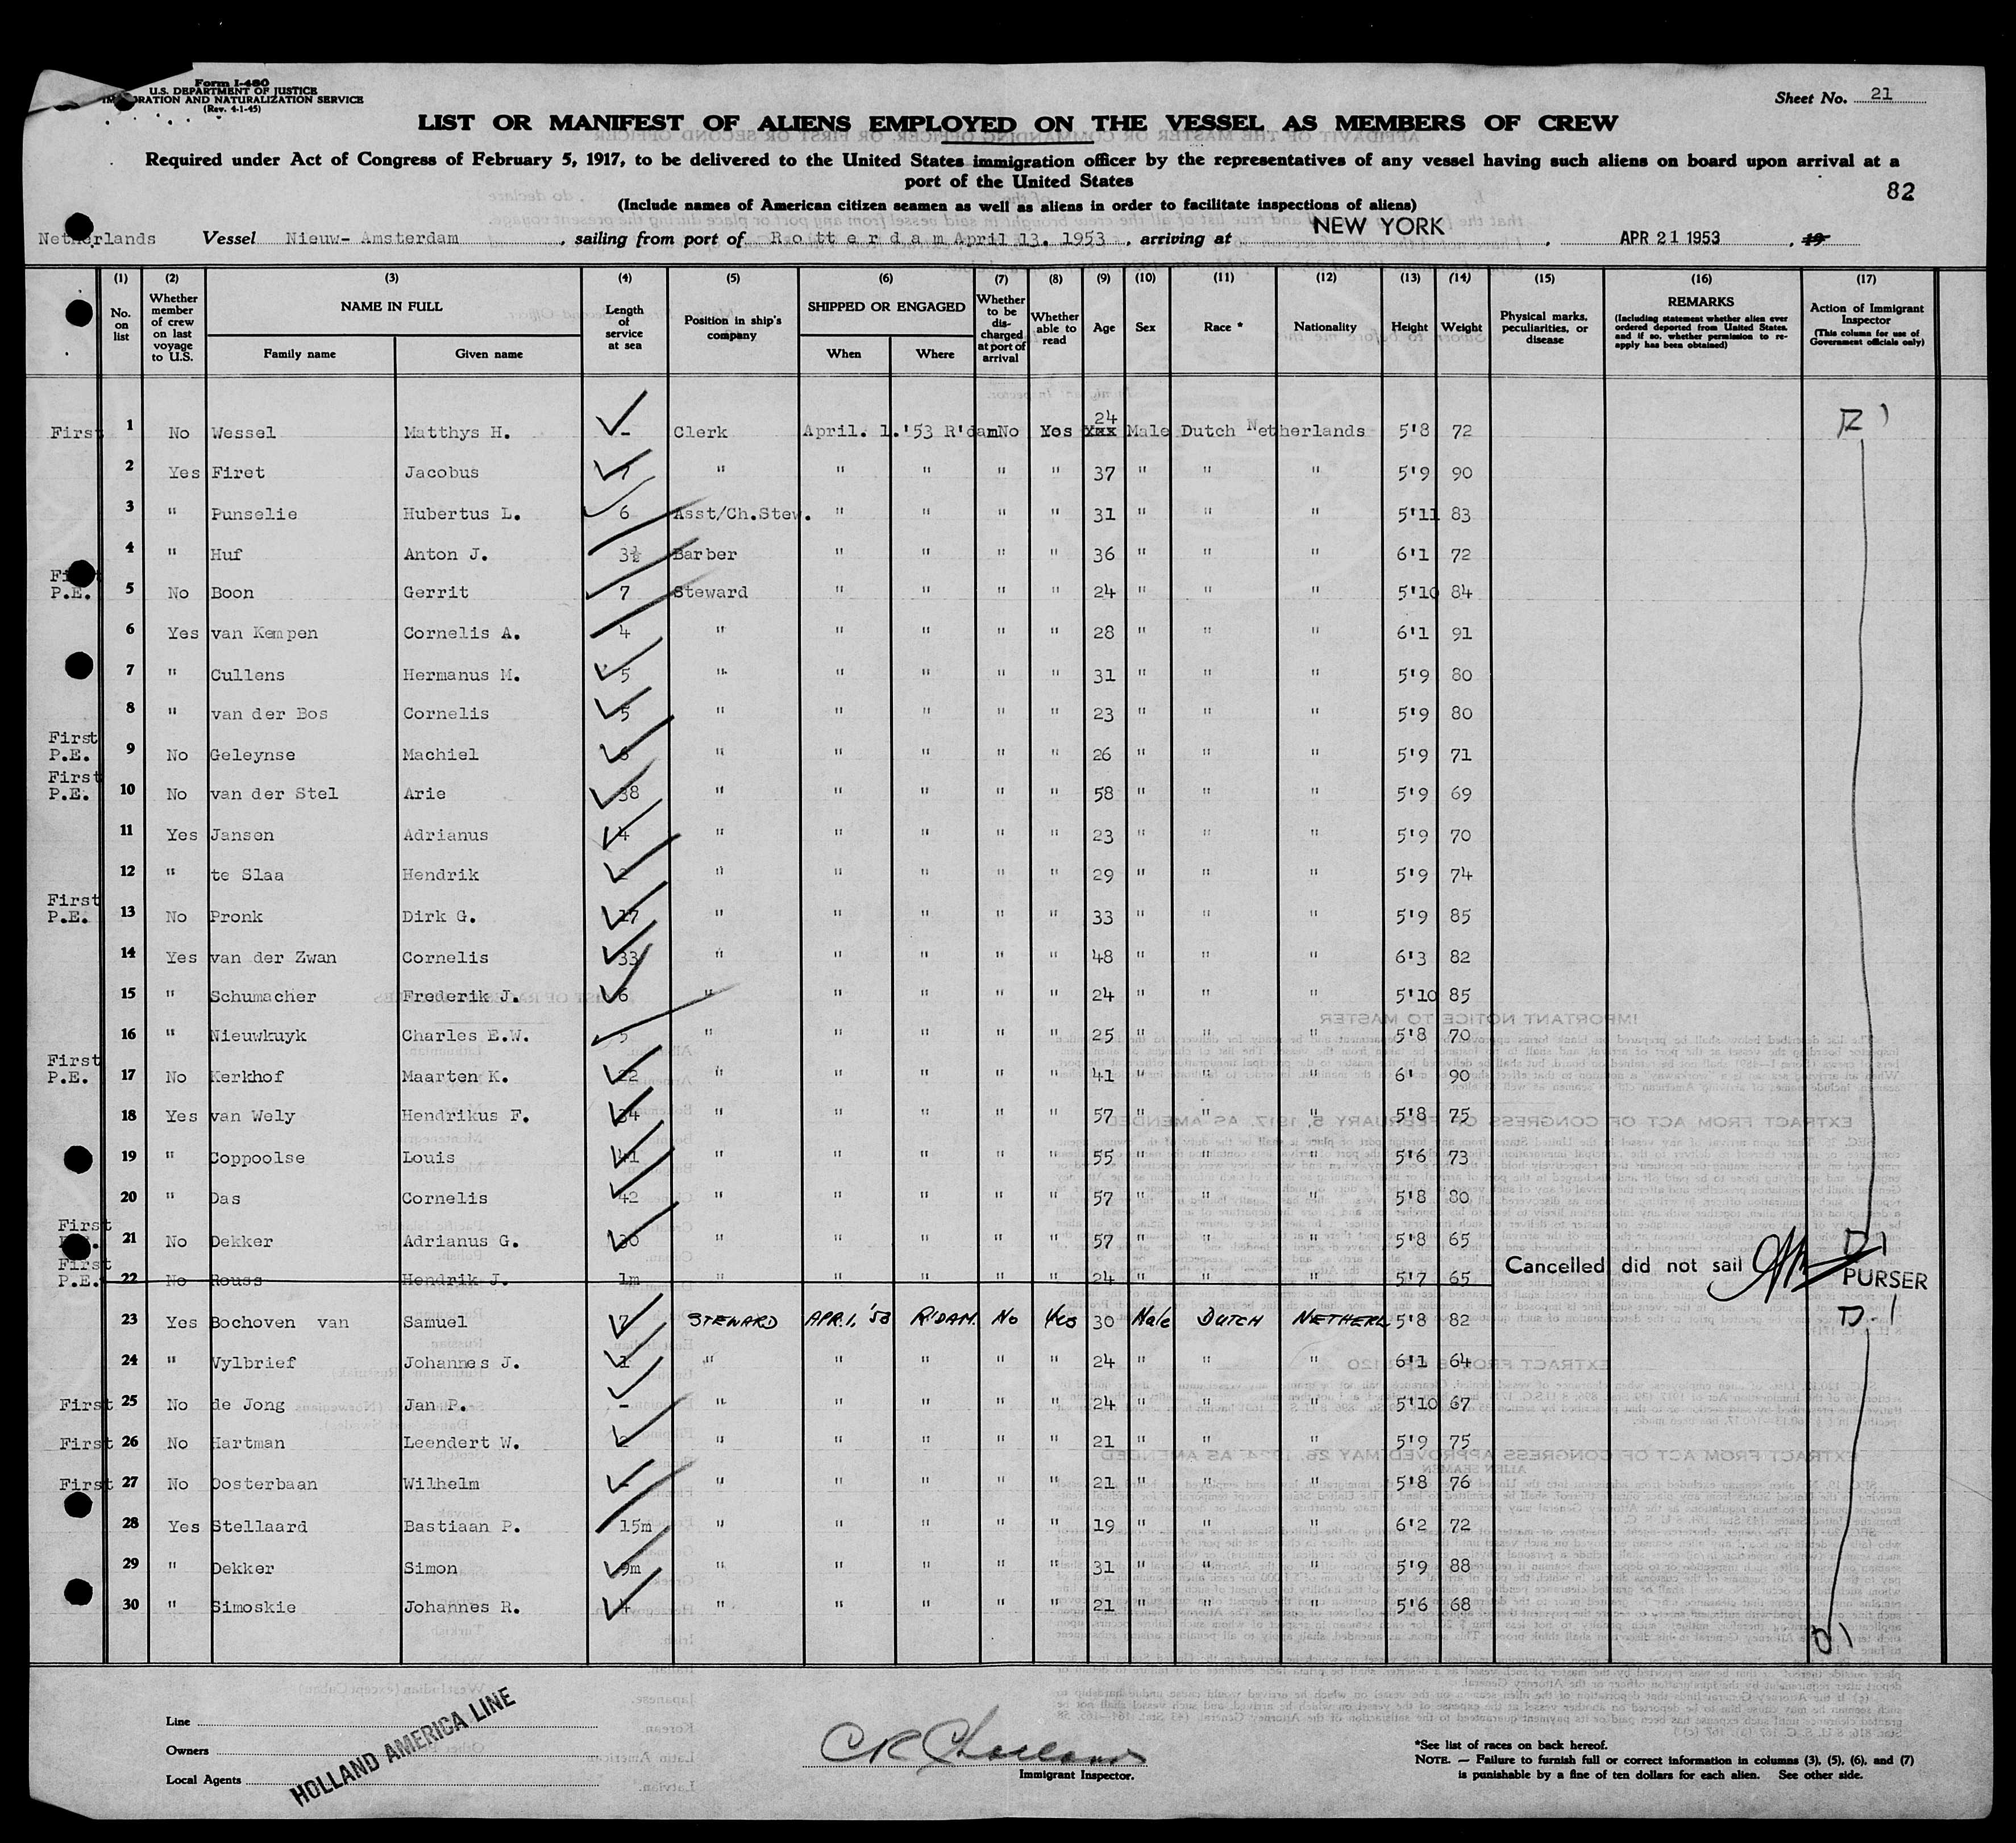 Form I-480
U.S. DEPARTMENT OF JUSTICE
IMMIGRATION AND NATURALIZATION SERVICE
(Rev. 4-1-45)
Sheet No. 21
LIST OR MANIFEST OF ALIENS EMPLOYED ON THE VESSEL AS MEMBERS OF CREW
Required under Act of Congress of February 5, 1917, to be delivered to the United States immigration officer by the representatives of any vessel having such aliens on board upon arrival at a
port of the United States
82
(Include names of American citizen seamen as well as aliens in order to facilitate inspections of aliens)
Netherlands Vessel Nieuw- Amsterdam, sailing from port of Rotterdam April 13. 1953, arriving at NEW YORK, APR 21 1953, 19
(1) (2) (3) (4) (5) (6) (7) (8) (9) (10) (11) (12) (13) (14) (15) (16) (17)
No. on list
Whether member of crew on last voyage to U.S.
NAME IN FULL
Family name
Given name
Length of service at sea
Position in ship's company
SHIPPED OR ENGAGED
When
Where
Whether to be discharged at port of arrival
Whether able to read
Age
Sex
Race *
Nationality
Height
Weight
Physical marks, peculiarities, or disease
REMARKS
(Including statement whether alien ever ordered deported from United States, and if so, whether permission to reapply has been obtained)
Action of Immigrant Inspector
(This column for use of Government officials only)
First 1 No Wessel Matthys H. - Clerk April. 1.'53 R'dam No Yes 24 Male Dutch Netherlands 5'8 72
2 Yes Firet Jacobus 7 " " " " " 37 " " " 5'9 90
3 " Punselie Hubertus L. 6 Asst/Ch.Stew. " " " " 31 " " " 5'11 83
4 " Huf Anton J. 3½ Barber " " " " 36 " " " 6'1 72
First P.E. 5 No Boon Gerrit 7 Steward " " " " 24 " " " 5'10 84
6 Yes van Kempen Cornelis A. 4 " " " " " 28 " " " 6'1 91
7 " Cullens Hermanus M. 5 " " " " " 31 " " " 5'9 80
8 " van der Bos Cornelis 5 " " " " " 23 " " " 5'9 80
First P.E. 9 No Geleynse Machiel " " " " " 26 " " " 5'9 71
First P.E. 10 No van der Stel Arie 38 " " " " " 58 " " " 5'9 69
11 Yes Jansen Adrianus 4 " " " " " 23 " " " 5'9 70
12 " te Slaa Hendrik 2 " " " " " 29 " " " 5'9 74
First P.E. 13 No Pronk Dirk G. 17 " " " " " 33 " " " 5'9 85
14 Yes van der Zwan Cornelis 33 " " " " " 48 " " " 6'3 82
15 " Schumacher Frederik J. 6 " " " " " 24 " " " 5'10 85
16 " Nieuwkuyk Charles E.W. 5 " " " " " 25 " " " 5'8 70
First P.E. 17 No Kerkhof Maarten K. 22 " " " " " 41 " " " 6' 90
18 Yes van Wely Hendrikus F. 34 " " " " " 57 " " " 5'8 75
19 " Coppoolse Louis 41 " " " " " 55 " " " 5'6 73
20 " Das Cornelis 42 " " " " " 57 " " " 5'8 80
First P.E. 21 No Dekker Adrianus G. 30 " " " " " 57 " " " 5'8 65
First P.E. 22 No Rouss Hendrik J. 1m " " " " " 24 " " " 5'7 65 Cancelled did not sail PURSER
23 Yes Bochoven van Samuel 7 STEWARD APR.1,'53 R'DAM. No Yes 30 Male DUTCH NETHERL 5'8 82
24 " Vylbrief Johannes J. 1 " " " " " 24 " " " 6'1 64
First 25 No de Jong Jan P. - " " " " " 24 " " " 5'10 67
First 26 No Hartman Leendert W. 2 " " " " " 21 " " " 5'9 75
First 27 No Oosterbaan Wilhelm - " " " " " 21 " " " 5'8 76
28 Yes Stellaard Bastiaan P. 15m " " " " " 19 " " " 6'2 72
29 " Dekker Simon 9m " " " " " 31 " " " 5'9 88
30 " Simoskie Johannes R. 4 " " " " " 21 " " " 5'6 68
Line
Owners
Local Agents
HOLLAND AMERICA LINE
Immigrant Inspector.
*See list of races on back hereof.
NOTE. — Failure to furnish full or correct information in columns (3), (5), (6), and (7)
is punishable by a fine of ten dollars for each alien. See other side.